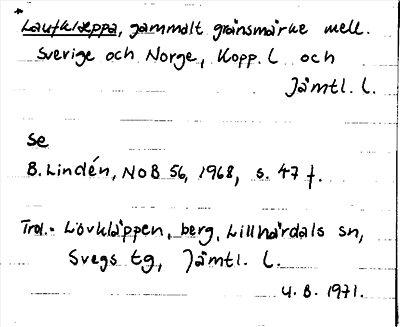 * Laufklæppa, gammalt gränsmärke mell.
Sverige och Norge, Kopp. l. och
Jämtl. l.
Se
B. Lindén, NoB 56, 1968, s. 47 f.
Trol. = Lövkläppen, berg, Lillhärdals sn,
Svegs tg, Jämtl. l.
U. B. 1971.